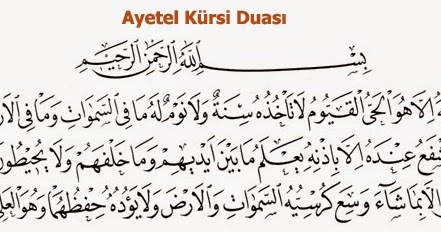 Ayetel Kürsi Duası
بِسْمِ اللّٰهِ الرَّحْمٰنِ الرَّحِيمِ
اِلَّا هُوَ الْحَىُّ الْقَيُّومُ لَا تَأْخُذُهُ سِنَةٌ وَلَا نَوْمٌ لَهُ مَا فِى السَّمٰوَاتِ وَمَا فِى
عِنْدَهُ اِلَّا بِاِذْنِهِ يَعْلَمُ مَا بَيْنَ اَيْدِيهِمْ وَمَا خَلْفَهُمْ وَلَا يُحِيطُونَ
اِلَّا بِمَا شَاءَ وَسِعَ كُرْسِيُّهُ السَّمٰوَاتِ وَالْاَرْضَ وَلَا يَؤُدُهُ حِفْظُهُمَا وَهُوَ